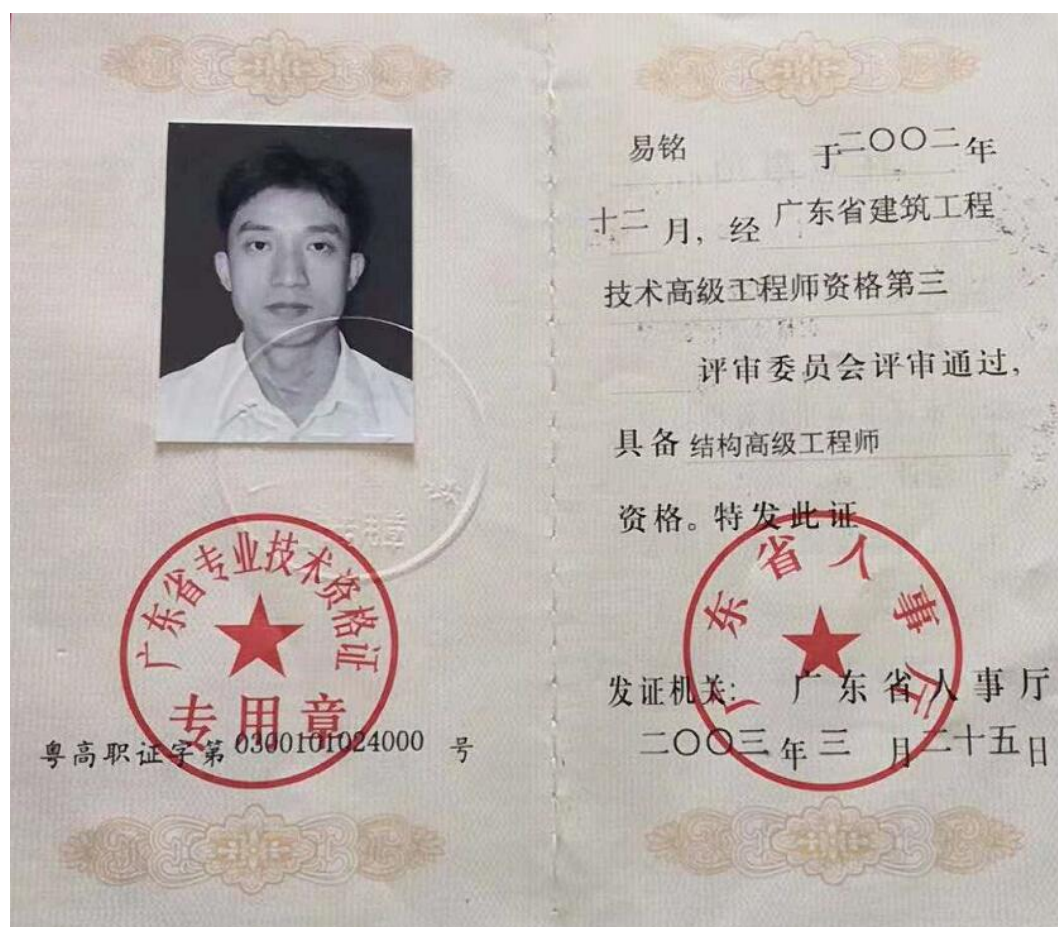 广东省专业技术资格证
专用章
粤高职证字第 0300101024000 号
易铭 于二〇〇二年
十二月，经广东省建筑工程
技术高级工程师资格第三
评审委员会评审通过，
具备 结构高级工程师
资格。特发此证
广东省人事厅
发证机关： 广东省人事厅
二〇〇三年三月二十五日